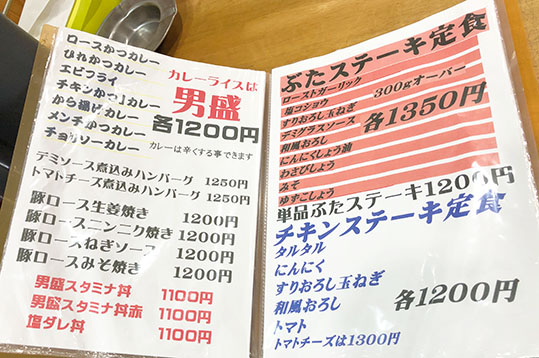 ロースかつカレー
ひれかつカレー
エビフライ
チキンかつカレー
から揚げカレー
メンチかつカレー
チョリソーカレー
カレーライスは
男盛
各1200円
カレーは辛くする事できます
デミソース煮込みハンバーグ 1250円
トマトチーズ煮込みハンバーグ 1250円
豚ロース生姜焼き 1200円
豚ロースニンニク焼き 1200円
豚ロースねぎソース 1200円
豚ロースみそ焼き 1200円
男盛スタミナ丼 1100円
男盛スタミナ丼赤 1100円
塩ダレ丼 1100円
ぶたステーキ定食
ローストガーリック
塩コショウ
すりおろし玉ねぎ
デミグラスソース
和風おろし
にんにくしょう油
わさびしょう
みそ
ゆずこしょう
300gオーバー
各1350円
単品ぶたステーキ1200円
チキンステーキ定食
タルタル
にんにく
すりおろし玉ねぎ
和風おろし
トマト
各1200円
トマトチーズは1300円